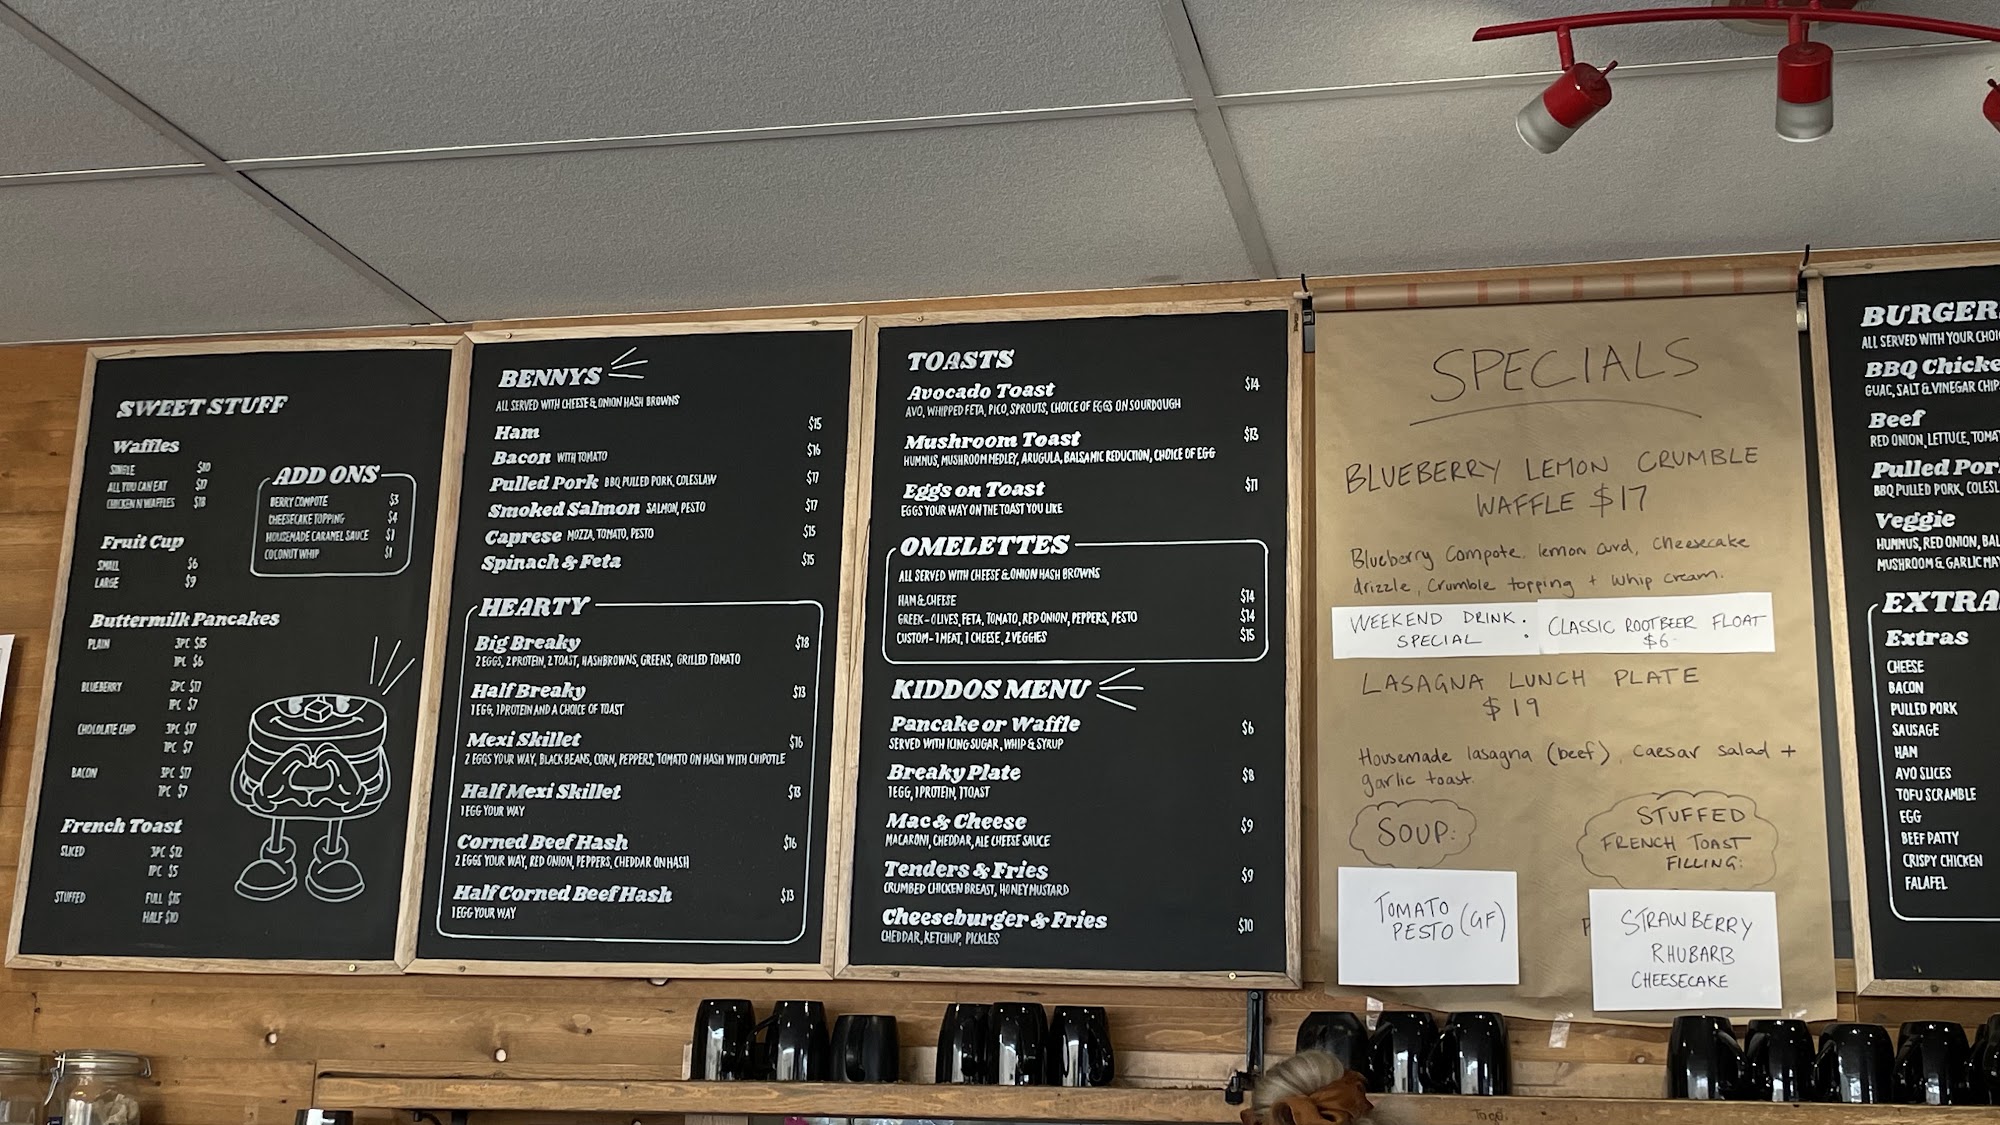 SWEET STUFF
Waffles
SINGLE $10
ALL YOU CAN EAT $17
CHICKEN N WAFFLES $18
ADD ONS
BERRY COMPOTE $3
CHEESECAKE TOPPING $4
HOUSEMADE CARAMEL SAUCE $1
COCONUT WHIP $1
Fruit Cup
SMALL $6
LARGE $9
Buttermilk Pancakes
PLAIN 3PC $15
1PC $6
BLUEBERRY 3PC $17
1PC $7
CHOCOLATE CHIP 3PC $17
1PC $7
BACON 3PC $17
1PC $7
French Toast
SLICED 3PC $12
1PC $5
STUFFED FULL $15
HALF $10
BENNYS
ALL SERVED WITH CHEESE & ONION HASH BROWNS
Ham $15
Bacon WITH TOMATO $16
Pulled Pork BBQ PULLED PORK, COLESLAW $17
Smoked Salmon SALMON, PESTO $17
Caprese MOZZA, TOMATO, PESTO $15
Spinach & Feta $15
HEARTY
Big Breaky $18
2 EGGS, 2 PROTEIN, 2 TOAST, HASHBROWNS, GREENS, GRILLED TOMATO
Half Breaky $13
1 EGG, 1 PROTEIN AND A CHOICE OF TOAST
Mexi Skillet $16
2 EGGS YOUR WAY, BLACK BEANS, CORN, PEPPERS, TOMATO ON HASH WITH CHIPOTLE
Half Mexi Skillet $13
1 EGG YOUR WAY
Corned Beef Hash $16
2 EGGS YOUR WAY, RED ONION, PEPPERS, CHEDDAR ON HASH
Half Corned Beef Hash $13
1 EGG YOUR WAY
TOASTS
Avocado Toast $14
AVO, WHIPPED FETA, PICO, SPROUTS, CHOICE OF EGGS ON SOURDOUGH
Mushroom Toast $13
HUMNUS, MUSHROOM MEDLEY, ARUGULA, BALSAMIC REDUCTION, CHOICE OF EGG
Eggs on Toast $11
EGGS YOUR WAY ON THE TOAST YOU LIKE
OMELETTES
ALL SERVED WITH CHEESE & ONION HASH BROWNS
HAM & CHEESE $14
GREEK - OLIVES, FETA, TOMATO, RED ONION, PEPPERS, PESTO $14
CUSTOM - 1 MEAT, 1 CHEESE, 2 VEGGIES $15
KIDDOS MENU
Pancake or Waffle $6
SERVED WITH ICING SUGAR, WHIP & SYRUP
Breaky Plate $8
1 EGG, 1 PROTEIN, 1 TOAST
Mac & Cheese $9
MACARONI, CHEDDAR, ALE CHEESE SAUCE
Tenders & Fries $9
CRUMBED CHICKEN BREAST, HONEY MUSTARD
Cheeseburger & Fries $10
CHEDDAR, KETCHUP, PICKLES
SPECIALS
BLUEBERRY LEMON CRUMBLE
WAFFLE $17
Blueberry Compote, lemon curd, cheesecake
drizzle, crumble topping + whip cream.
WEEKEND DRINK : CLASSIC ROOTBEER FLOAT
SPECIAL $6
LASAGNA LUNCH PLATE
$19
Housemade lasagna (beef), caesar salad +
garlic toast.
SOUP:
TOMATO
PESTO (GF)
STUFFED
FRENCH TOAST
FILLING:
STRAWBERRY
RHUBARB
CHEESECAKE
BURGER
ALL SERVED WITH YOUR CHOI
BBQ Chicke
GUAC, SALT & VINEGAR CHIP
Beef
RED ONION, LETTUCE, TOMA
Pulled Por
BBQ PULLED PORK, COLESL
Veggie
HUMNUS, RED ONION, BAL
MUSHROOM & GARLIC MA
EXTRA
Extras
CHEESE
BACON
PULLED PORK
SAUSAGE
HAM
AVO SLICES
TOFU SCRAMBLE
EGG
BEEF PATTY
CRISPY CHICKEN
FALAFEL